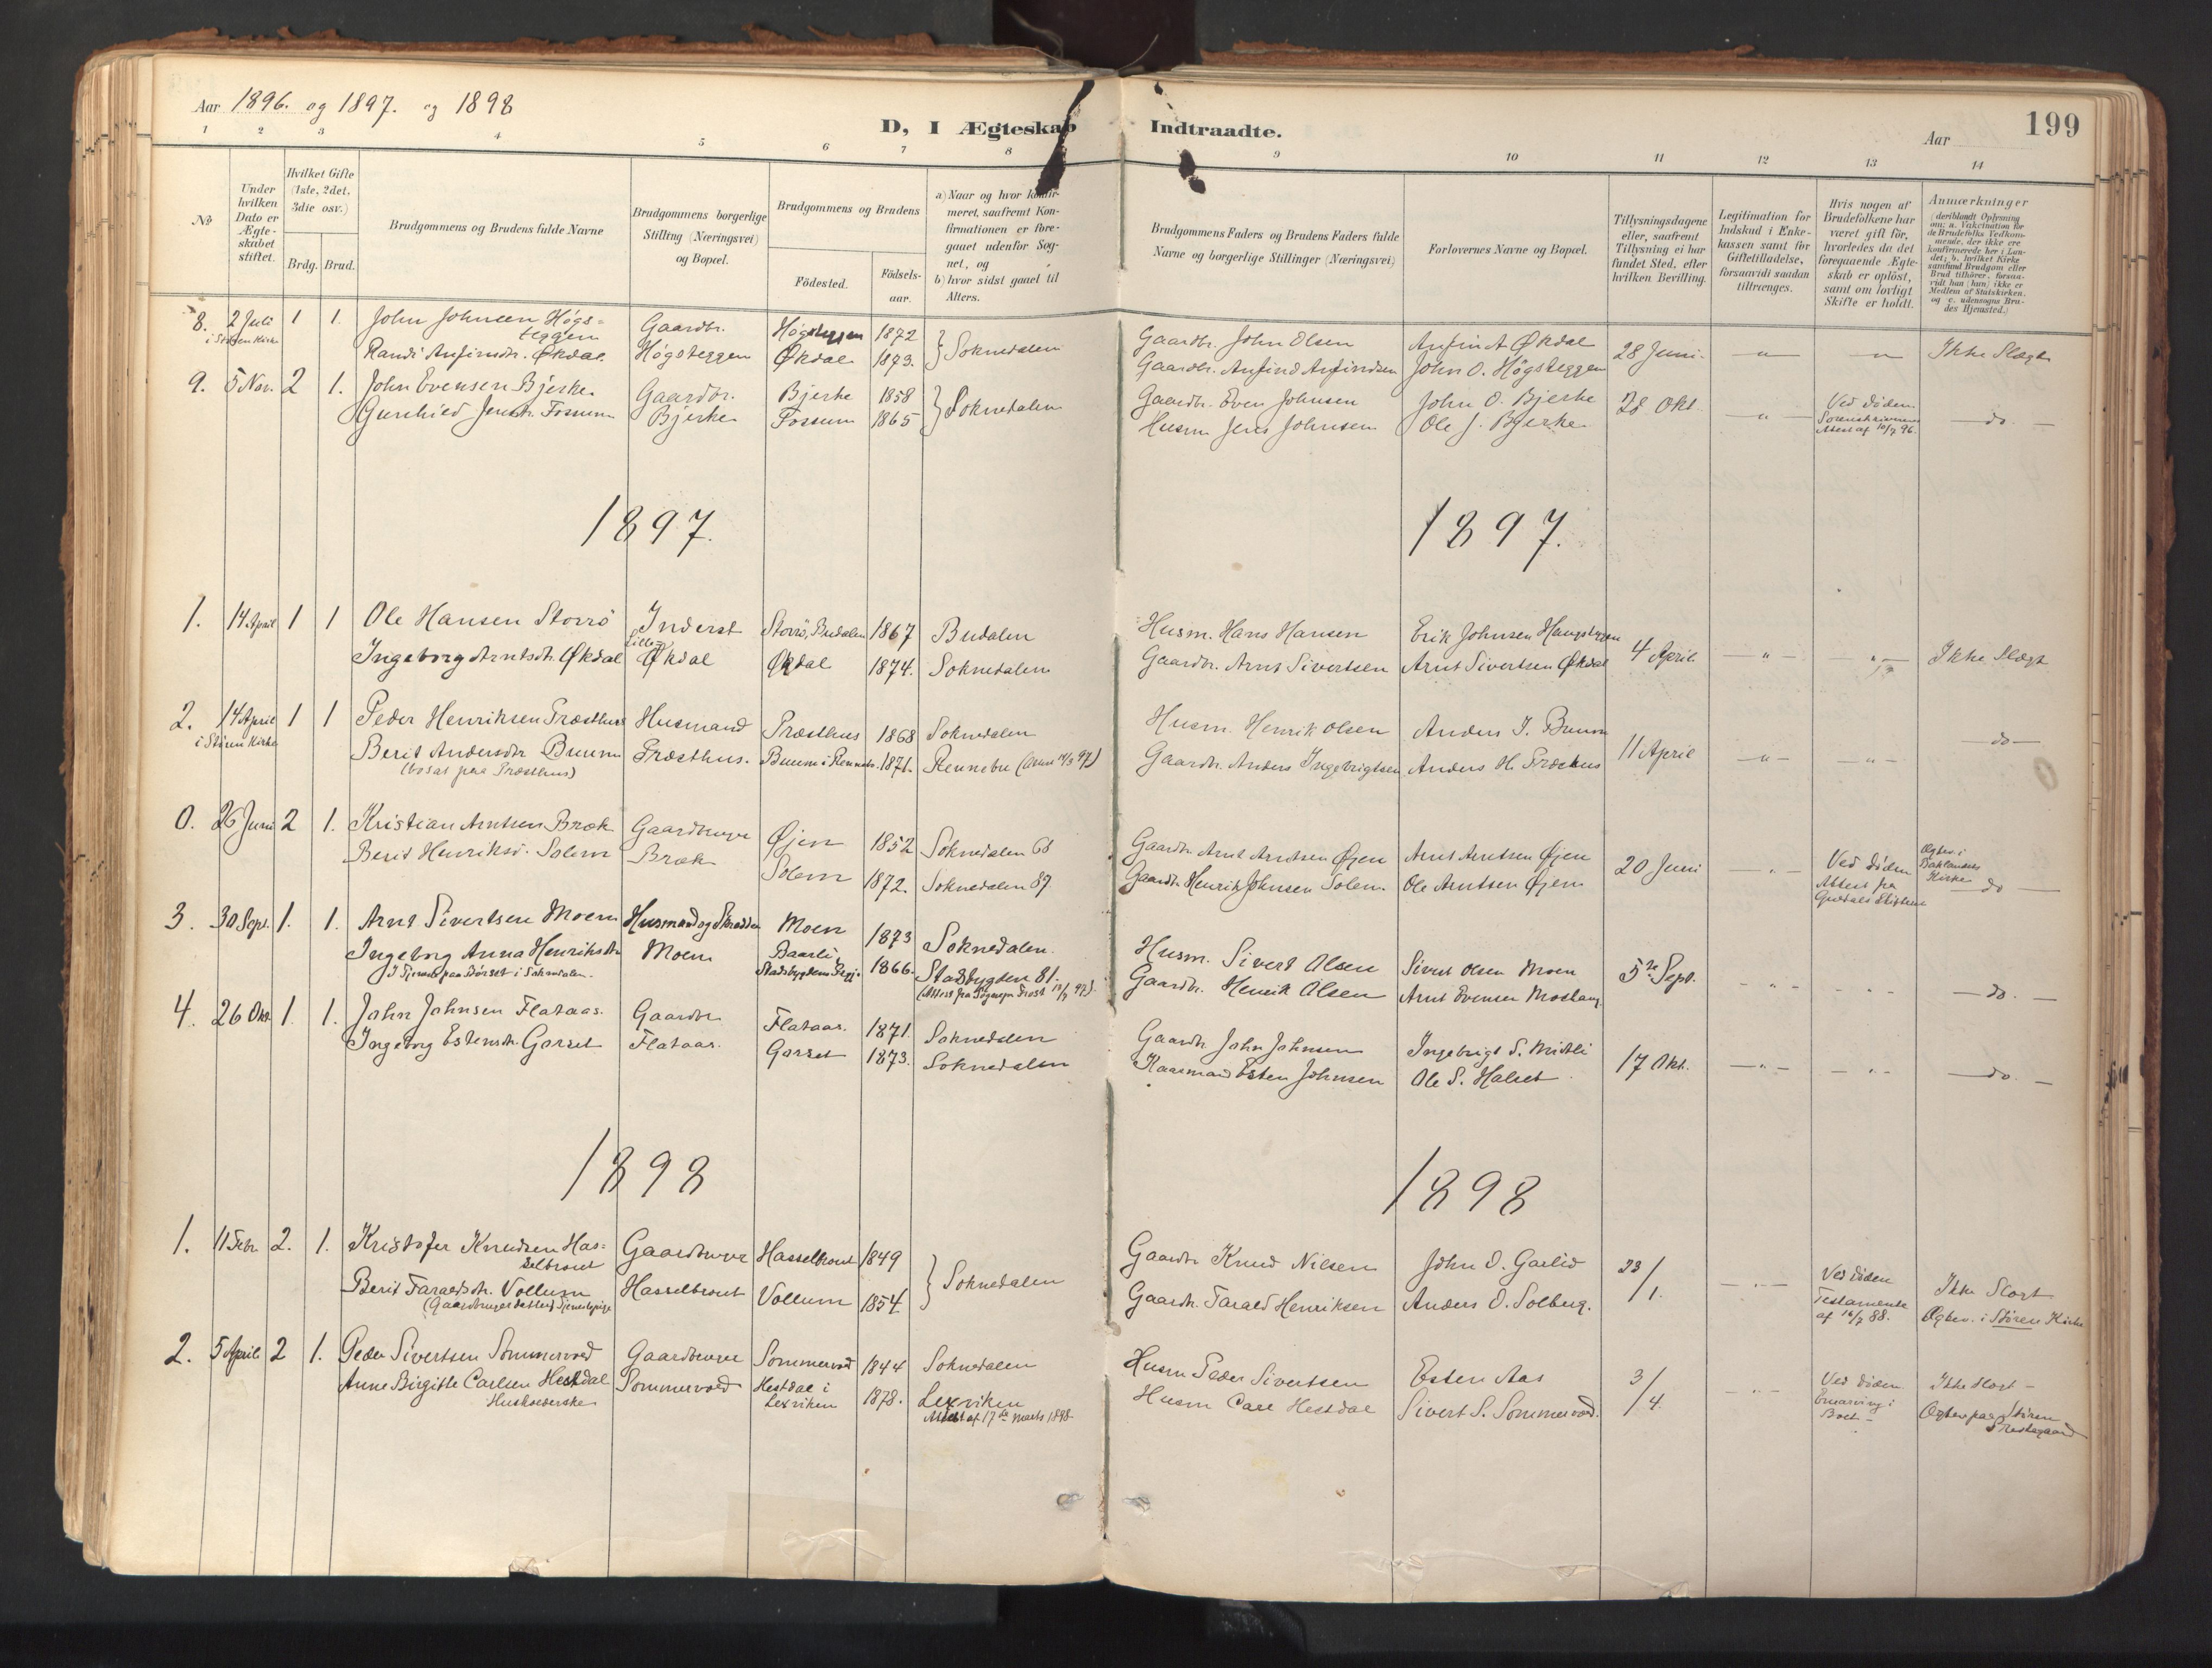 Aar 1896. og 1897. og 1898
D, I Ægteskab Indtraadte.
Aar
199
1 2 3 4 5 6 7 8 9 10 11 12 13 14
No
Under hvilken Dato er Ægteskabet stiftet.
Hvilket Gifte (1ste, 2det, 3die osv.)
Brdg. Brud.
Brudgommens og Brudens fulde Navne
Brudgommens borgerlige Stilling (Næringsvei) og Bopæl.
Brudgommens og Brudens
Födested.
Födsels-aar.
a) Naar og hvor konfir-
meret, saafremt Kon-
firmationen er fore-
gaaet udenfor Sog-
net, og
b) hvor sidst gaaet til
Alters.
Brudgommens Faders og Brudens Faders fulde
Navne og borgerlige Stillinger (Næringsvei)
Forlovernes Navne og Bopæl.
Tillysningsdagene
eller, saafremt
Tillysning ei har
fundet Sted, efter
hvilken Bevilling.
Legitimation for
Indskud i Enke-
kassen samt for
Giftetilladelse,
forsaavidt saadan
tiltrænges.
Hvis nogen af
Brudefolkene har
været gift för,
hvorledes da det
foregaaende Ægte-
skab er oplöst,
samt om lovligt
Skifte er holdt.
Anmærkninger
(deriblandt Oplysning
om: a. Vakcination for
de Brudefolks Vedkom-
mende, der ikke ere
konfirmerede her i Lan-
det; b. hvilket Kirke
samfund Brudgom eller
Brud tilhörer, forsaa-
vidt han (hun) ikke er
Medlem af Statskirken.
og c. udensogns Bru-
des Hjemsted.)
8. 2 Juli 1 1. John Johnsen Högs= Gaardbr. Högsteggen 1872 Soknedalen Gaardbr. John Olsen Anfin A Økdal 28 Juni. — " — " Ikke Slægt
i Støren Kirke teggen
Randi Anfinsdtr. Økdal Högsteggen Økdal 1873. Gaardbr. Anfind Anfindsen John O. Högsteggen
9. 5 Nov. 2 1. John Evensen Bjerke Gaardbr. Bjerke 1858 Soknedalen Gaardbr. Even Johnsen John O. Bjerke 28 Okt. — " — Ved Døden — do. —
Gunhild Jensdtr. Fossum Bjerke Fossum 1865 Husm Jens Johnsen Ole J. Bjerke Sorenskriverens
Attest af 10/7 96.
1897. 1897.
1. 14 April 1 1 Ole Hansen Storrö Inderst Storrö, Budalen 1867 Budalen Husm. Hans Hansen Erik Johnsen 4 April. — " — — " — Ikke Slægt
Ingeborg Arntsdtr. Økdal Lille Økdal Økdal 1874. Soknedalen Gaardbr. Arnt Sivertsen Arnt Sivertsen Økdal
2. 14 April 1 1 Peder Henriksen Præsthus Husmand Præsthus 1868 Soknedalen Husm. Henrik Olsen Anders I. Buum 11 April — " — — " — — do —
i Støren Kirke
Berit Andersdtr Buum Præsthus. Buum i Rennebu 1871. Rennebu Gaardbr. Anders Ingebrigtsen Anders H. Præsthus
(bosat paa Præsthus)
0. 26 Juni 2 1. Kristian Arntsen Bræk Gaardbruger Øjen 1852 Soknedalen 68 Gaardbr. Arnt Arntsen Øjen Arnt Arntsen Øjen 20 Juni — " — Ved Døden Ægtev. i Baklandets Kirke
Berit Henriksd. Solem Bræk Solem 1872. Soknedalen 87 Gaardbr. Henrik Johnsen Solem Ole Arntsen Øjen Attest fra — do —
3. 30 Sept. 1. 1. Arnt Sivertsen Moen Husmand og Skrædder Moen 1873 Soknedalen. Husm. Sivert Olsen Sivert Olsen Moen 5te Sept. — " — — " — — do. —
Ingeborg Anna Henriksdtr Moen Baarli, Stadsbygdens 1866. Stadsbygden 81. Gaardbr. Henrik Olsen Arnt Evensen
I Tjeneste paa Børset i Soknedalen.
4. 26 Okt. 1 1. John Johnsen Flataas. Gaardbr Flataas. 1871. Soknedalen Gaardbr John Johnsen Ingebrigt S. Midtli 17 Okt. — " — — " — — do. —
Ingeborg Estensdtr. Garset Flataas. Garset 1873. Soknedalen Kaarmand Esten Johnsen Ole S. Halset
1898 1898
1. 11 Febr. 2. 1. Kristofer Knudsen Has= Gaardbruger Hasselbrout 1849 Soknedalen Gaardbr Knud Nilsen John O. Garlid 23/1. — " — Ved Døden Ikke Slægt
selbrout Testamente
Berit Taraldsdtr. Vollum Hasselbrout Vollum 1854. Gaardbr. Tarald Henriksen Anders O. Solberg. af 16/7 88. Ægtev. i Støren Kirke
(Gaardbruger datter) Tjenestepige
2. 5 April 2 1. Peder Sivertsen Sommervold Gaardbruger Sommervold 1844 Soknedalen Husm Peder Sivertsen Esten Aas 3/4. — " — Ved Døden Ikke Slægt —
Anne Birgitte Carlsen Hestdal Sommervold Hestdal i Lexviken 1878. Lexviken Husm Carl Hestdal Sivert S. Sommervold. Enearving i Boet — Ægtev. paa Støren Prestegaard
Husholderske Attest af 17de Marts 1898